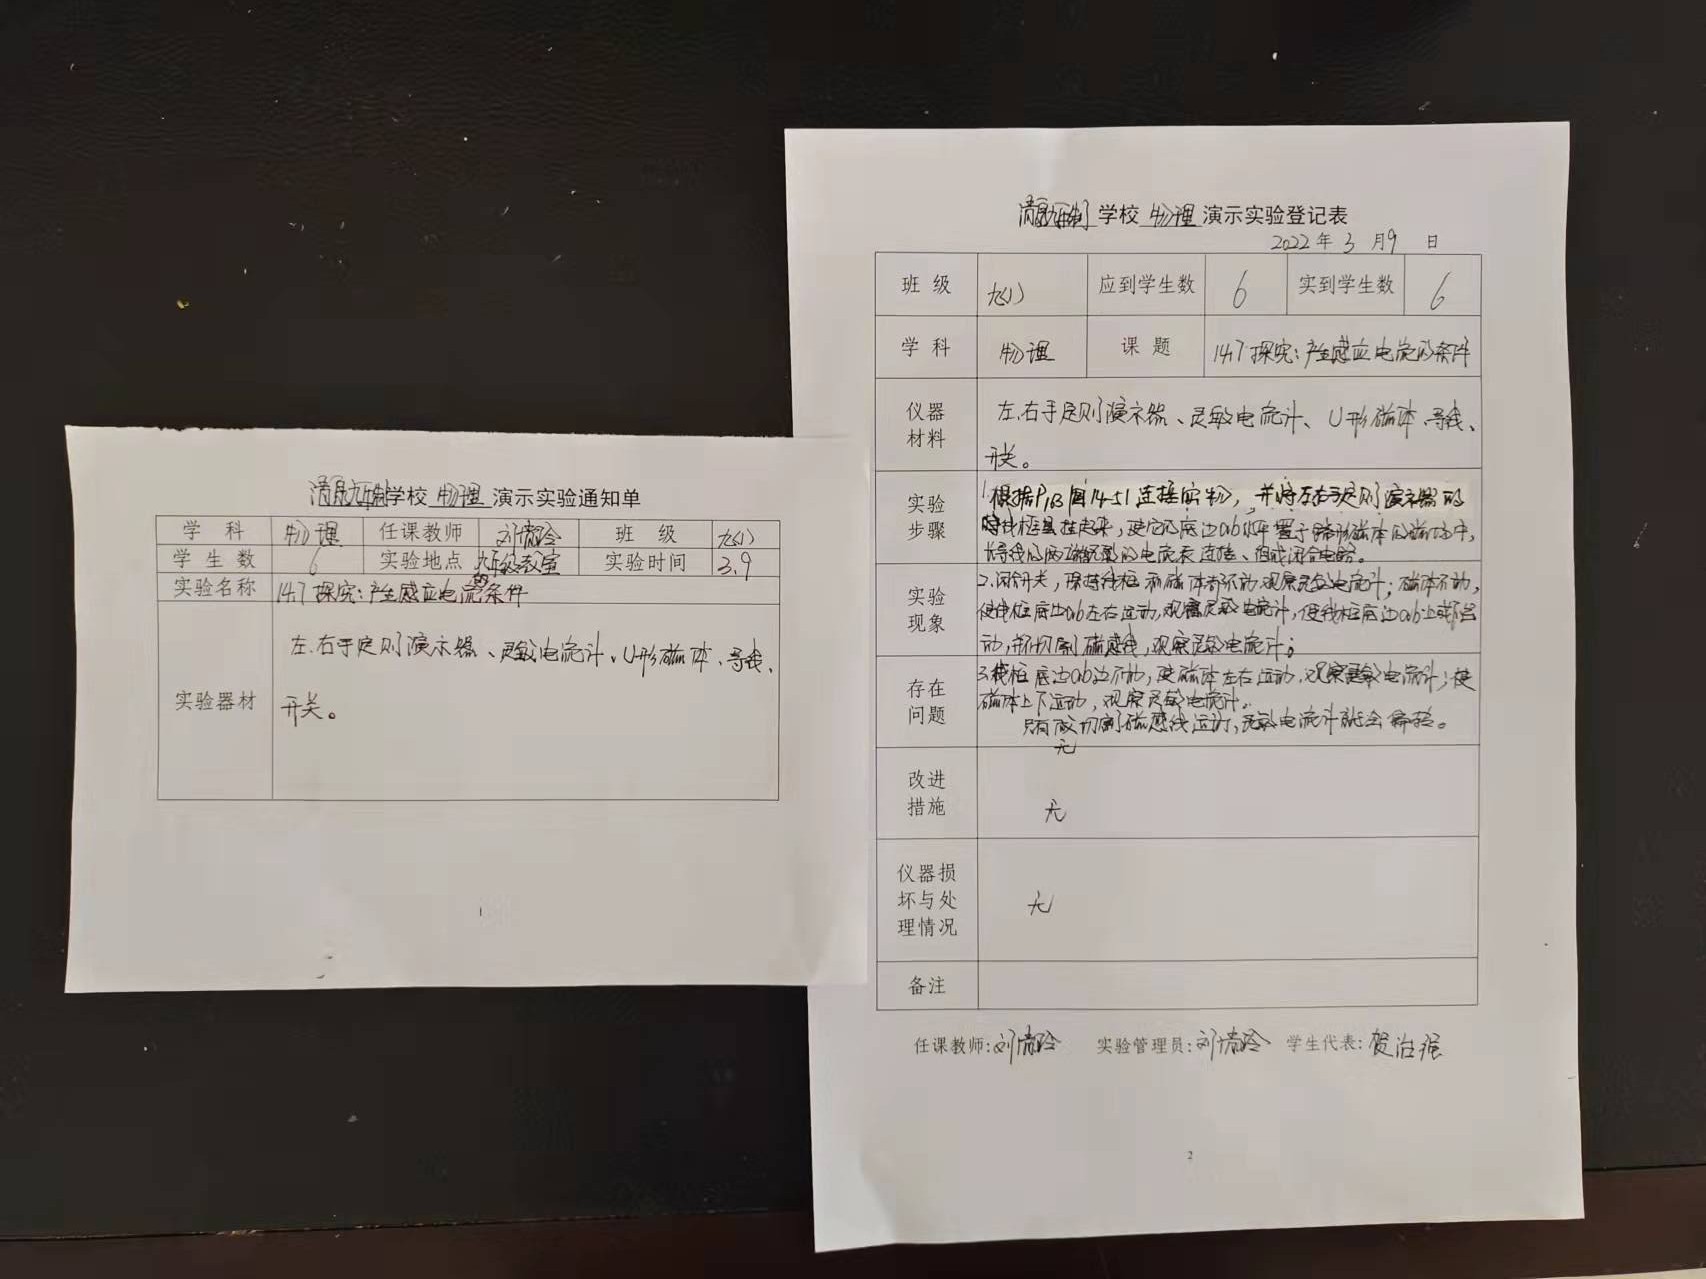 学校 物理 演示实验通知单
学 科 物理 任课教师 班 级 九(1)
学生数 6 实验地点 九年级教室 实验时间 3.9
实验名称 14.7 探究:产生感应电流的条件
实验器材 左、右手定则演示器、灵敏电流计、U形磁体、导线、
开关。
1
学校 物理 演示实验登记表
2022年 3 月 9 日
班 级 九(1) 应到学生数 6 实到学生数 6
学 科 物理 课 题 14.7 探究:产生感应电流的条件
仪器材料 左、右手定则演示器、灵敏电流计、U形磁体、导线、
开关。
实验步骤 1.根据P13图14-51连接实物,并将左右手定则演示器的
线框悬挂起来,使它的底边ab水平置于蹄形磁体的磁场中,
导线的两端跟灵敏电流表连接、组成闭合电路。
实验现象 2.闭合开关,保持线框和磁体都不动,观察灵敏电流计;磁体不动,
使线框底边ab左右运动,观察灵敏电流计,使线框底边ab上或下运
动,不切割磁感线,观察灵敏电流计;
存在问题 3.线框底边ab边不动,使磁体左右运动,观察灵敏电流计;使
磁体上下运动,观察灵敏电流计。
只有做切割磁感线运动,灵敏电流计就会偏转。
无
改进措施 无
仪器损坏与处理情况 无
备注
任课教师: 实验管理员: 学生代表: 贺治强
2